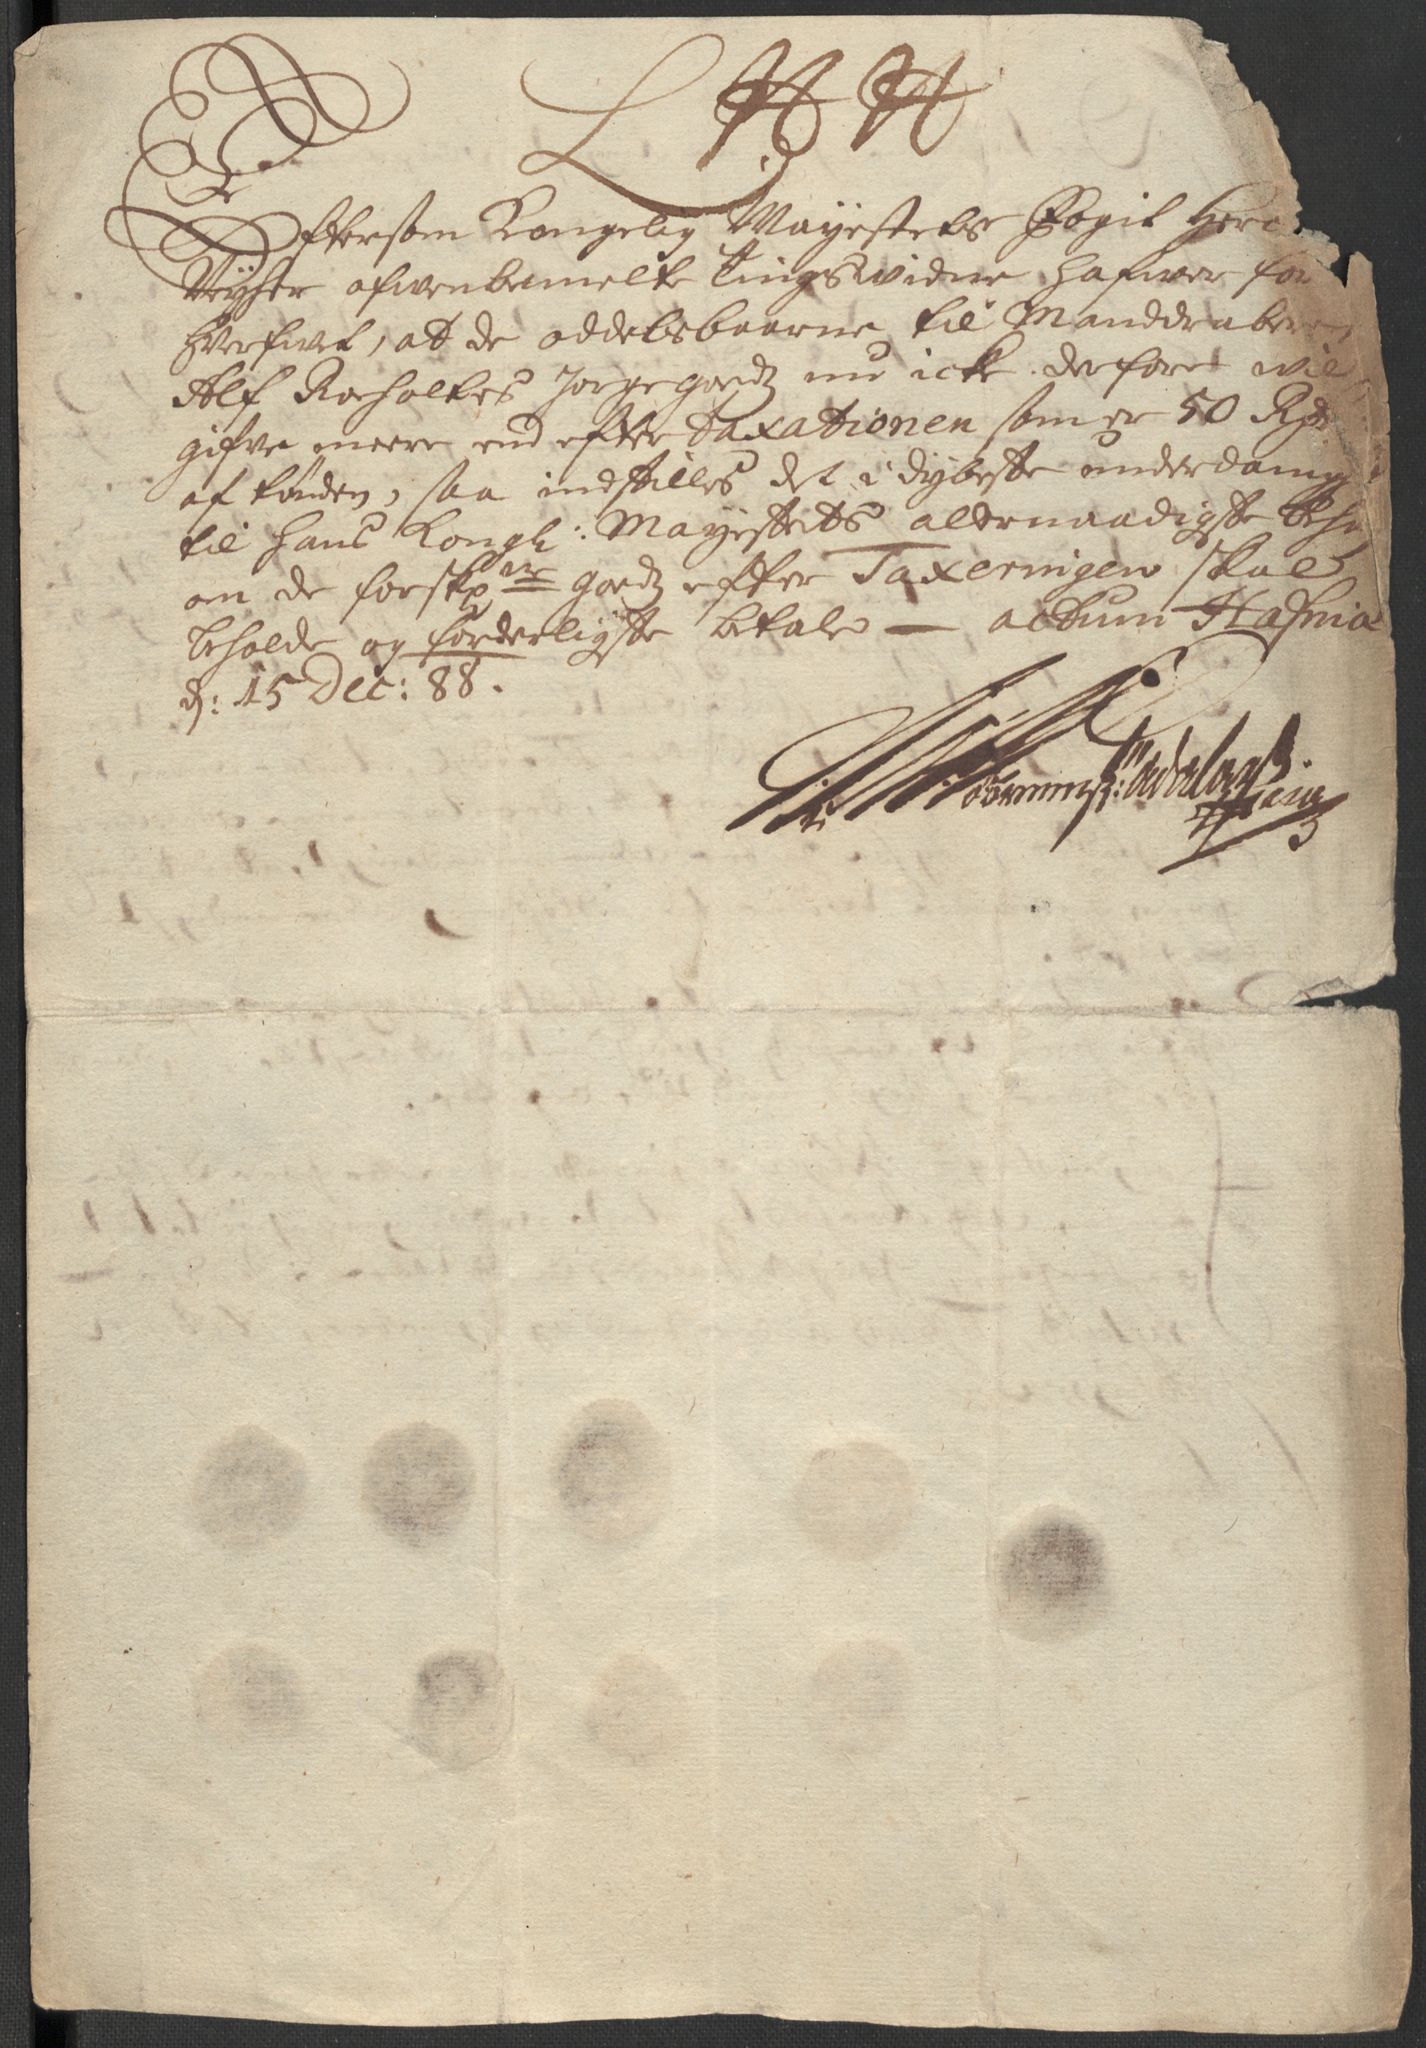 Eftersom Kongelig Mayestets Fogit Herr
Weyher ofwenbemelte Tingswidne hafwer for
hverfwet, at de oddelsbaarne til Manddraberen
Alf Roholtes Jorgegoedz nu icke derfore wil
gifve meere end efter taxationen som er 50 Rdr
af tønden, saa indstilles det i dybeste underdanig
til Hans Kongl: Mayestets allernaadigste behag
om de forskr^ne goedz efter Taxeringen skal
beholde og forderligste betale — actum Hafniæ
d: 15 Dec: 88.